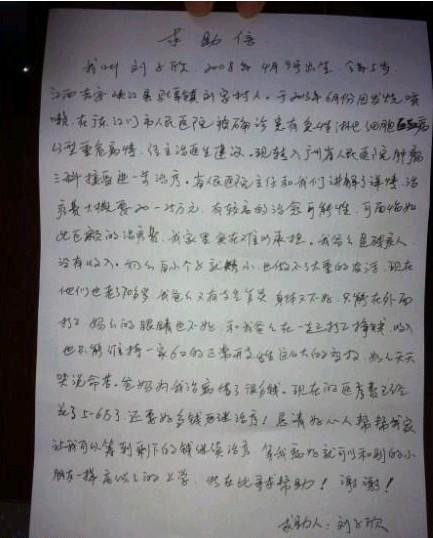 求助信
我叫刘子欣，2008年4月9号出生，今年5岁，
江西吉安峡江县砚溪镇刘家村人。于2013年6月份因发烧咳
嗽，在广东江门市人民医院被确诊患有急性淋巴细胞白血病
型重危病情，住主治医生建议。现转入广州省人民医院肿瘤
三科接受进一步治疗。省人民医院主任和我们讲解了详情，治
疗费大概要20一25万元，有较高的治愈可能性，可面临如
此巨额的治疗费，我家里实在难以承担。我爷么是残疾人，
没有收入。奶么自小个子就矮小，也做不了太重的农活，现在
他们也老了70多岁，我爸么又有身体又不好，只能在外面
打工，妈么的眼睛也不好，和我爸么在一起打工挣钱，收入
也只能维持一家6口的正常开支，奶么天天
哭说命苦。爸妈为我治病借了很多钱。现在的医药费已经
花了5-6万了，还要好多钱继续治疗！恳请好心人帮帮我家
让我可以筹到剩下的钱继续治疗，等我病好就可以和别的小
朋友一样高高兴兴的上学，我在此寻求帮助！谢谢！
求助人：刘子欣